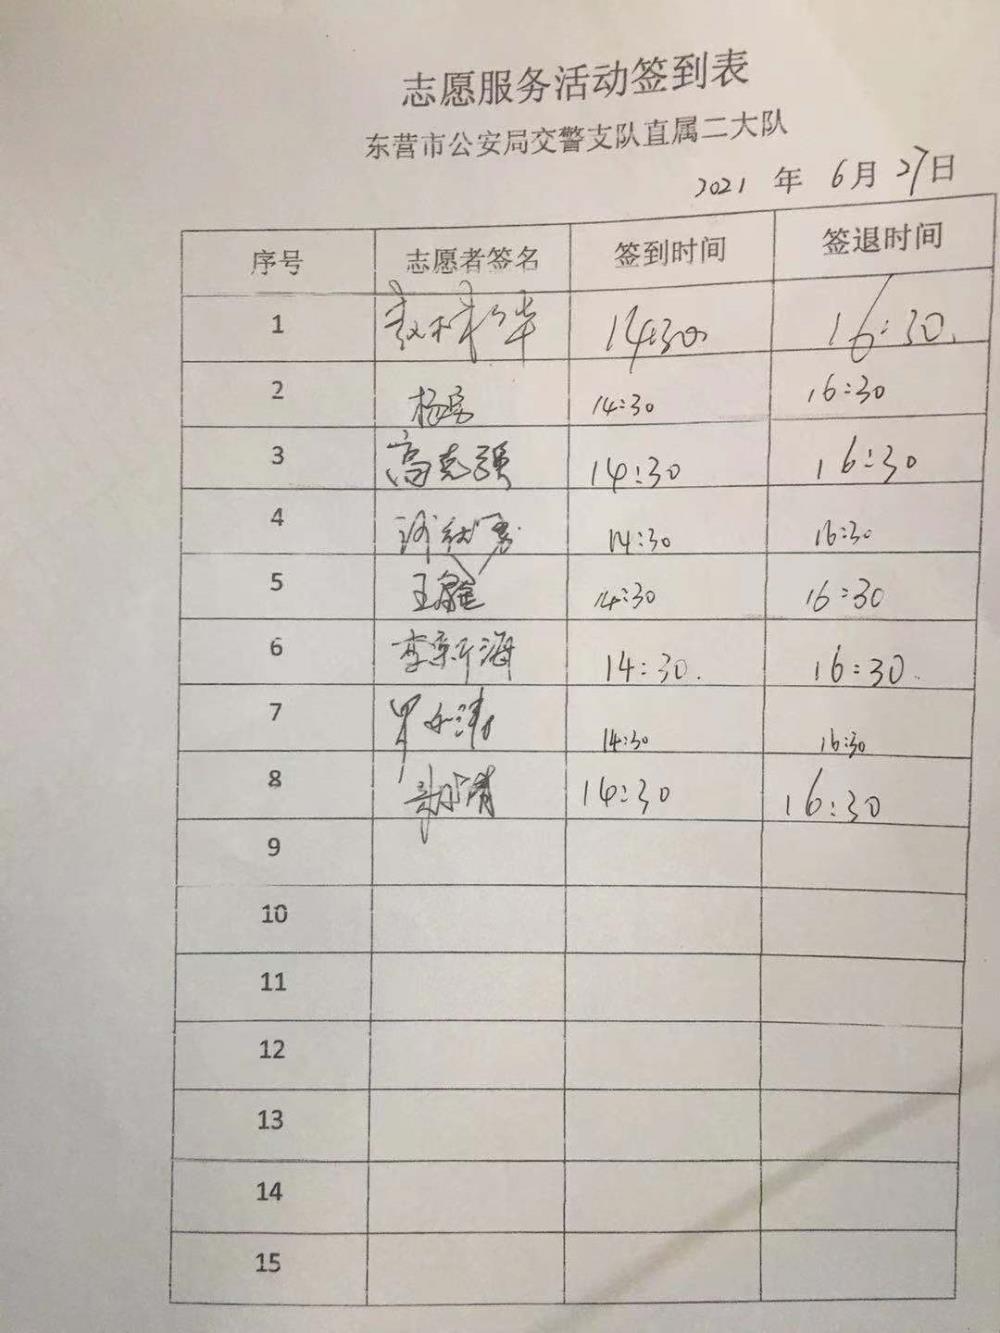 志愿服务活动签到表
东营市公安局交警支队直属二大队
2021 年 6月 27日
序号 志愿者签名 签到时间 签退时间
1 14:30 16:30.
2 14:30 16:30
3 高克强 14:30 16:30
4 14:30 16:30
5 王 14:30 16:30
6 李新海 14:30. 16:30.
7 14:30 16:30
8 14:30 16:30
9
10
11
12
13
14
15